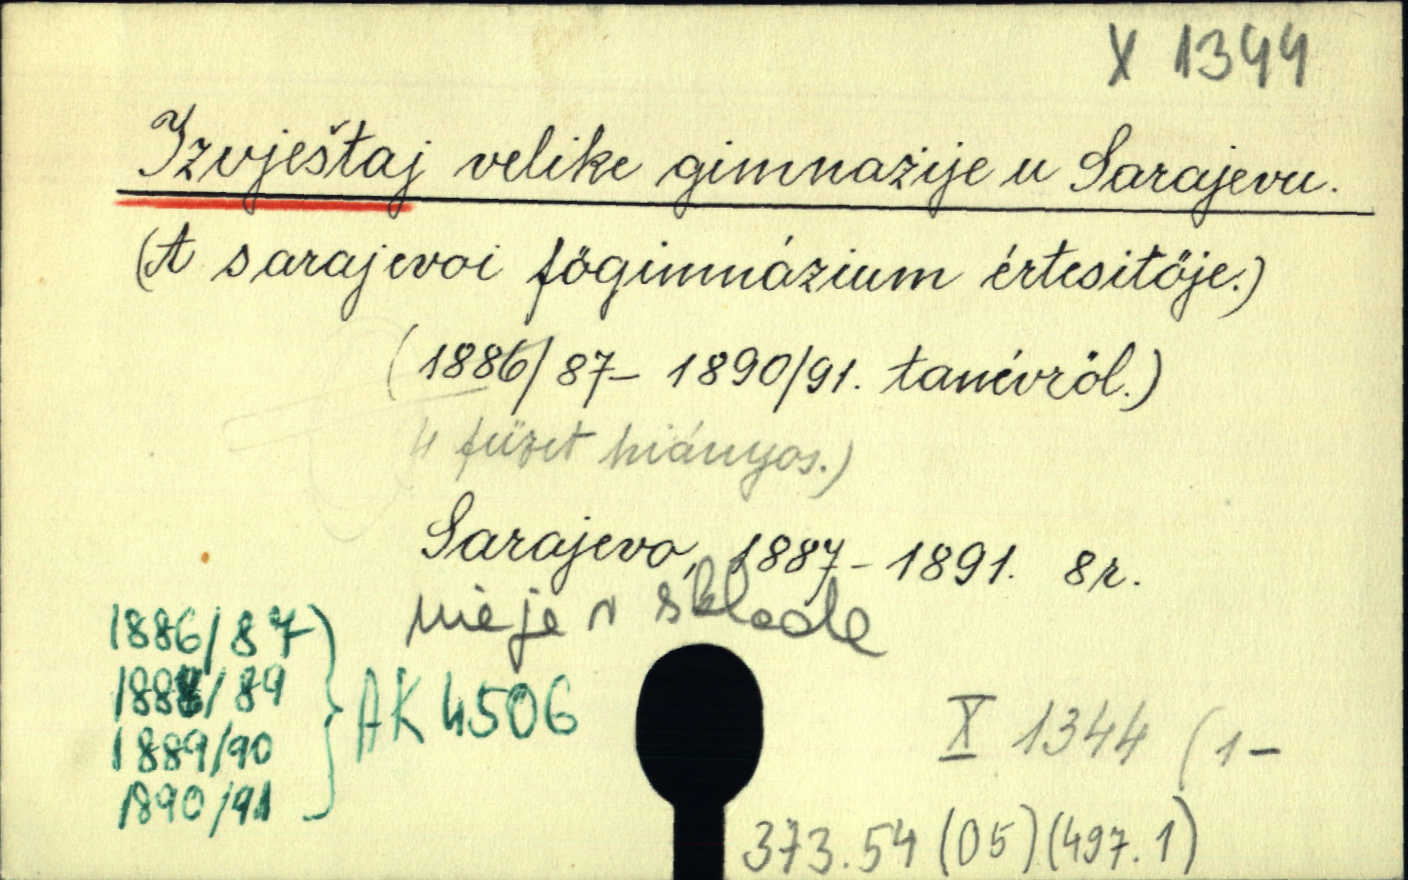 X 1344
Izvještaj velike gimnazije u Sarajevu.
(A sarajevoi főgimnázium értesitője.)
(1886/87 - 1890/91. tanévről.)
4 füzet hiányos.)
Sarajevo, 1887 - 1891. 8r.
nieje v sklade
1886/87
1888/89
1889/90
1890/91
} AK 4506
X 1344 (1-
373.54 (05) (497.1)